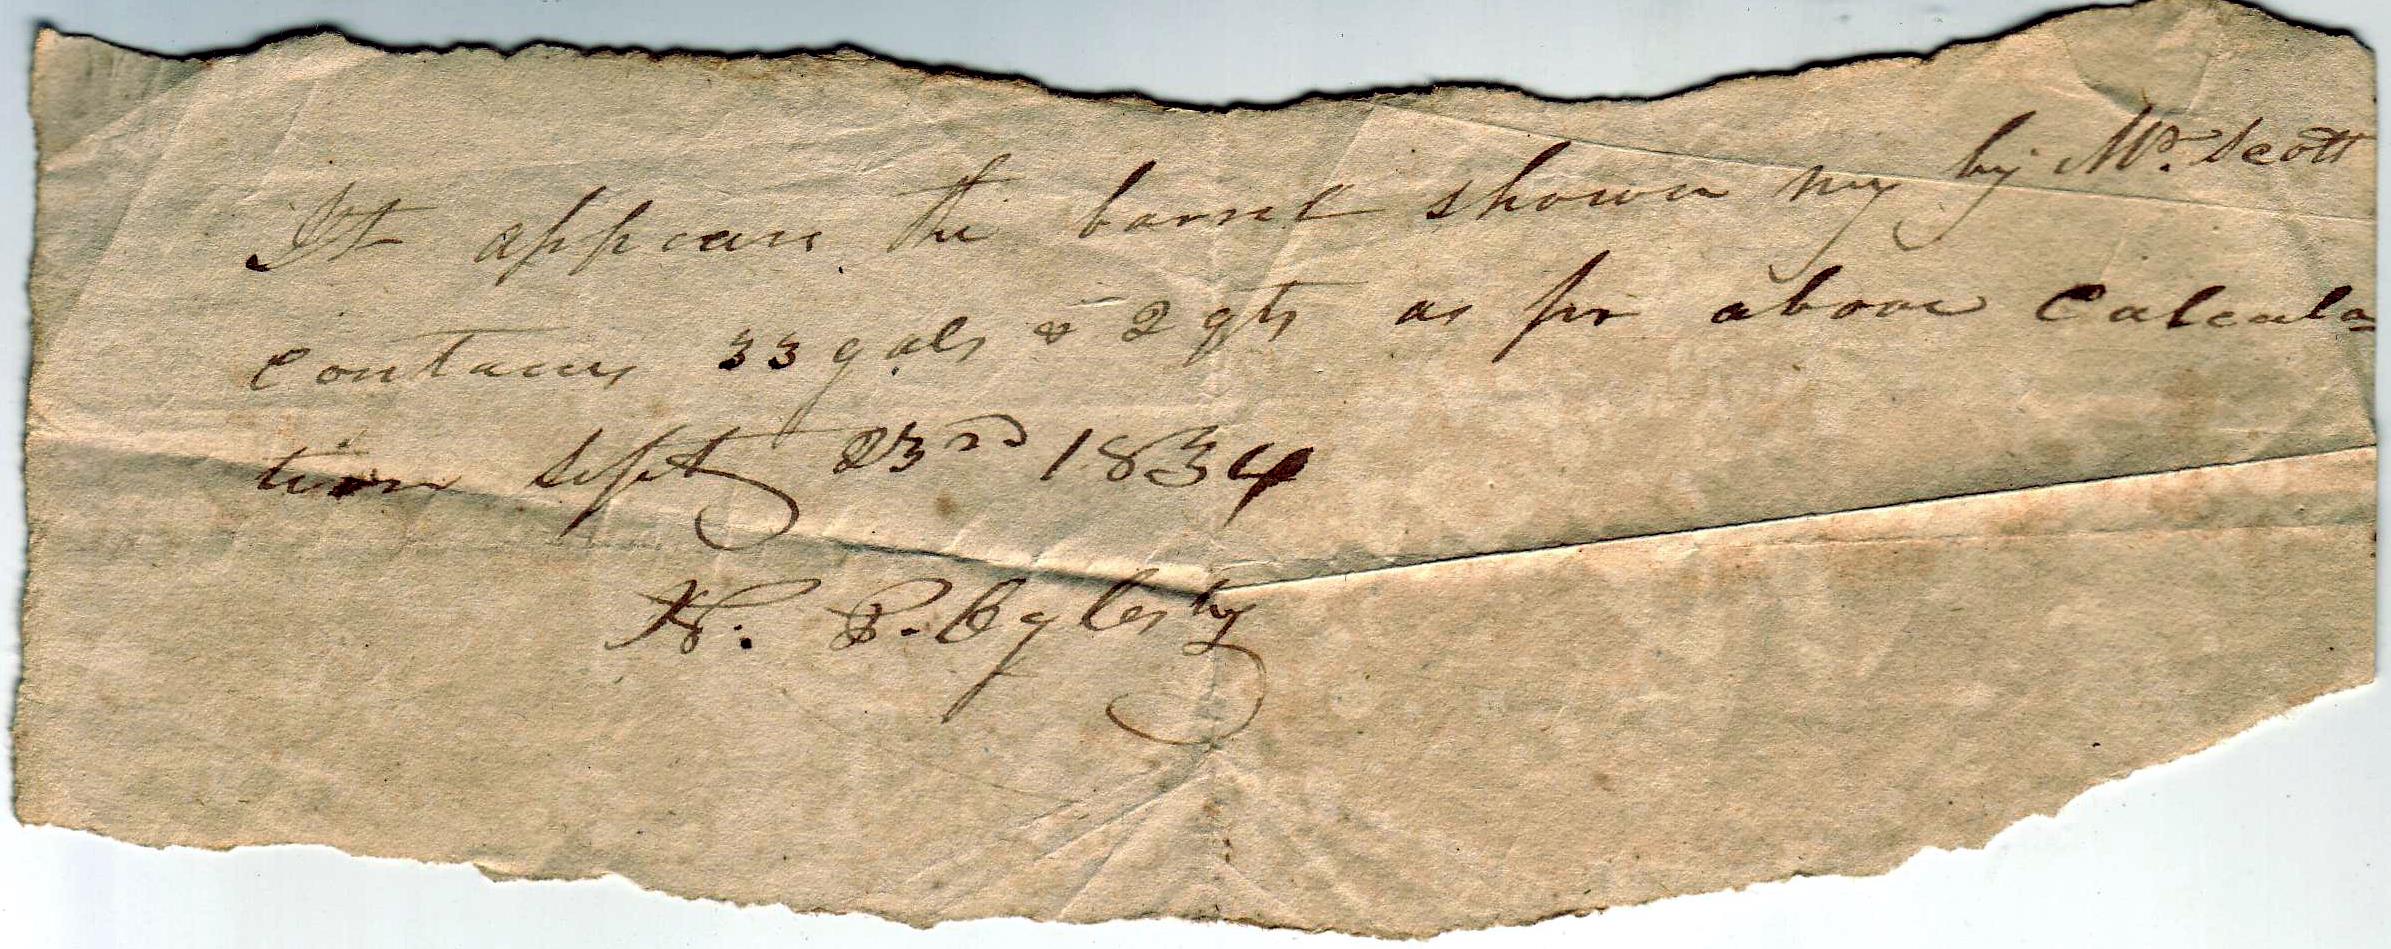 It appears the barrel shown my by Mr. Scott
contains 33 gals & 2 qts as per above Calcula=
tion Sept 23rd 1834
P. Oglesby